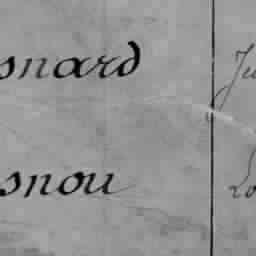 snard Ju
snou Lo